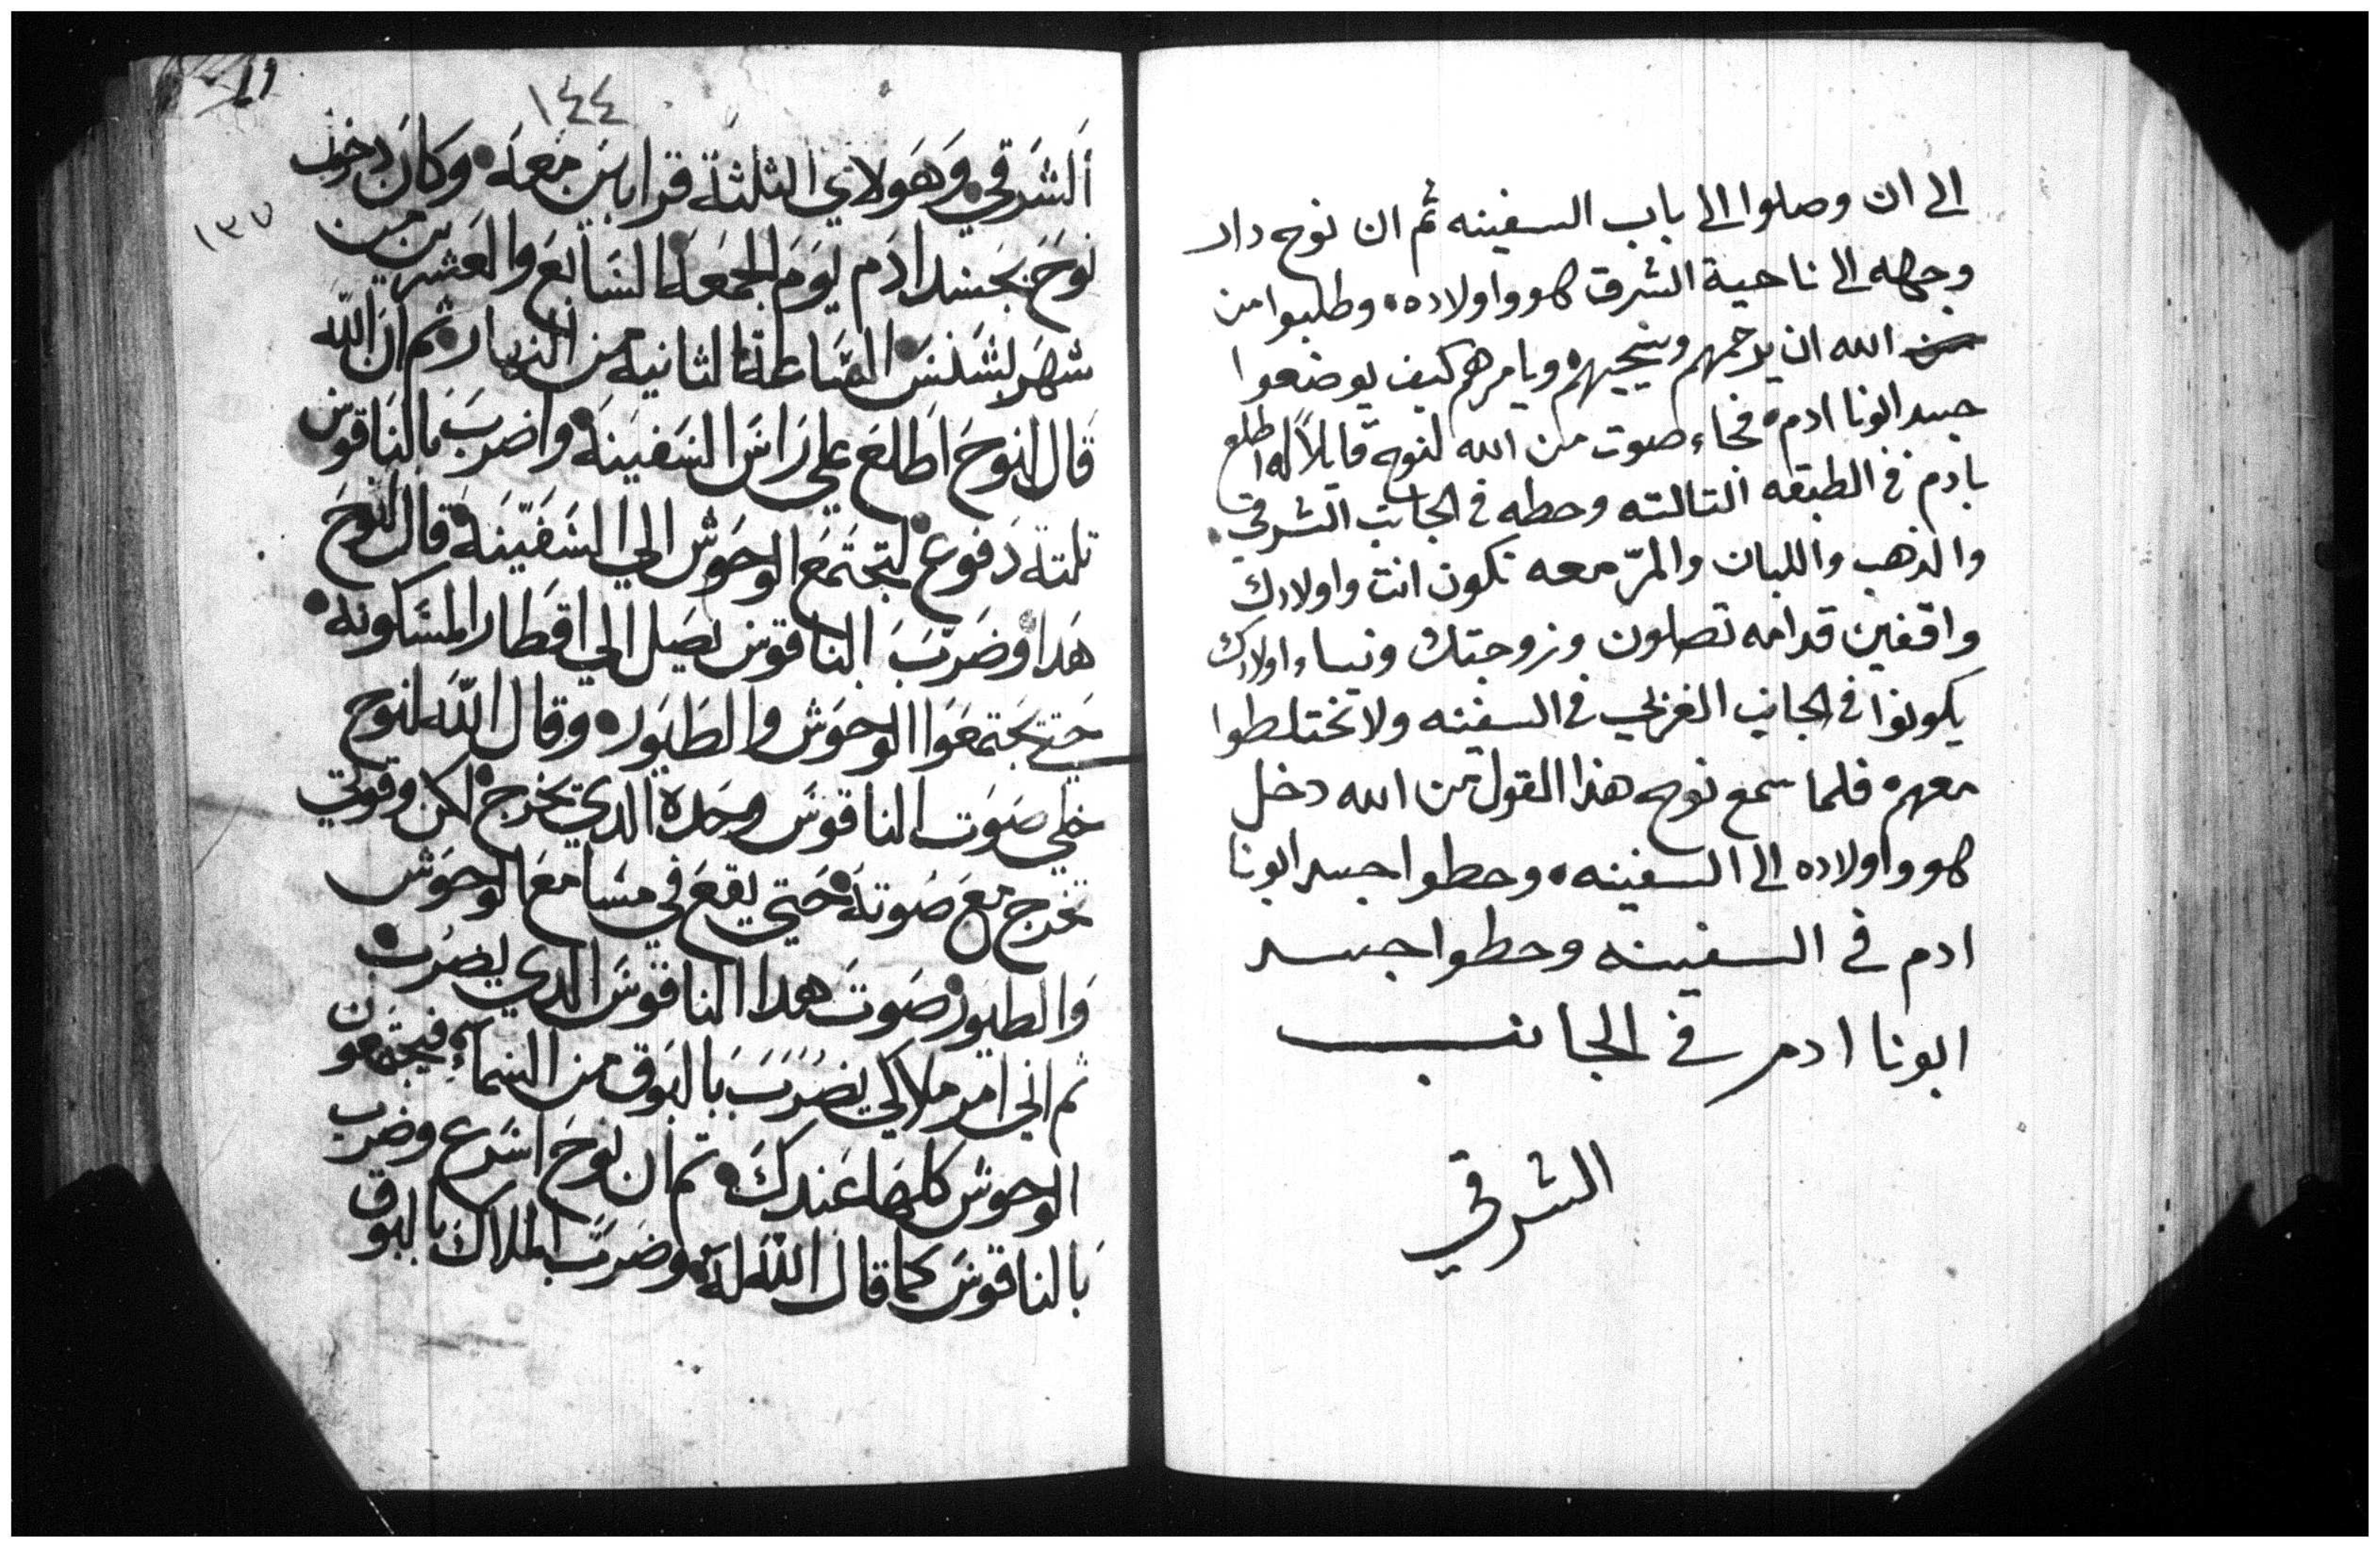 الى ان وصلوا الى باب السفينه ثم ان نوح دار
وجهه الى ناحية الشرق هو واولاده، وطلبوا من
الله ان يرحمهم وينجيهم ويامرهم كيف يوضعوا
جسد ابونا ادم، فجاء صوت من الله لنوح قايلاً له اطلع
بادم في الطبقه التالته وحطه في الجانب الشرقي
والذهب واللبان والمرّ معه تكون انت واولادك
واقفين قدامه تصلون وزوجتك ونساء اولادك
يكونوا في الجانب الغربي في السفينه ولا تختلطوا
معهم، فلما سمع نوح هذا القول من الله دخل
هو واولاده الى السفينه، وحطوا جسد ابونا
ادم في السفينه وحطوا جسد
ابونا ادم في الجانب
الشرقي
١٤٤
الشَرقي، وَهَولاي الثلثة قرابين معه، وكانَ دخول
١٣٧
نوحَ بجسد ادَم يَومَ الجمعَة السَابعَ والعشرين من
شهر بشنس السَاعة الثانيه من النهار، ثم ان اللّه
قال لنوحَ اطلعَ علي رَاسَ السَفينة، واضربَ بالنَاقوس
تلتة دَفوع، لتجتمعَ الوحَوش الي السَفينَة، قال نوحَ
هدا، وضَربَ الناقوس يصَل الي اقطار المسَكونة،
حَتي يجتمعَوا الوحوَش والطيَور، وقال اللّه لنوح
خلي صَوت الناقوسَ وحَده الدي يخرج، لكن وقوتي
تخرج معَ صَوته، حَتي يقعَ في مسَامعَ الوحوَش
وَالطيور، صَوتَ هدا الناقوسَ الدي يضرب،
ثم اني امر ملاكي يضرَبَ بالبَوق من السَماءِ، فيجتمعون
الوحوش كلهَا عَندكَ، تم ان نوحَ اسَرع وضرب
بَالناقوسَ كما قال اللّه له، وضربَ الملاك بالبوق